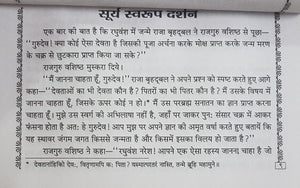 सूर्य स्वरूप दर्शन
एक बार को बात है कि रघुवंश में जन्मे राजा बृहद्बल ने राजगुरु वशिष्ठ से पूछा—
"गुरुदेव! क्या कोई ऐसा देवता है जिसकी पूजा अर्चना करके मोक्ष प्राप्त करके जन्म मरण
के चक्र से छुटकारा प्राप्त किया जा सके?"
राजगुरु वशिष्ठ मुस्करा दिये।
"मैं जानना चाहता हूँ, गुरुदेव!" राजा बृहद्बल ने अपने प्रश्न को स्पष्ट करते हुए आगे
कहा—"देवताओं का भी देवता कौन है? पितरों का भी पितर कौन है? मैं उसके विषय में
जानना चाहता हूँ, जिसके ऊपर कोई न हो।* मैं उस परब्रह्म सनातन का ज्ञान प्राप्त करना
चाहता हूँ। मुझे उस स्वर्ग की अभिलाषा नहीं है, जहाँ पर जाकर पुनः संसार चक्र में आकर
फंसना होता है अतः हे गुरुदेव! आप मुझ पर अपने ज्ञान की अमृत वर्षा करते हुए बतायें कि
यह स्थावर जंगम जगत किससे उत्पन्न होता है और किसमें इसका विलय हो जाता है?"
राजगुरु वशिष्ठ ने कहा—"रघुवंश नरेश! आपने एक ऐसा रहस्य जानना चाहा है जो